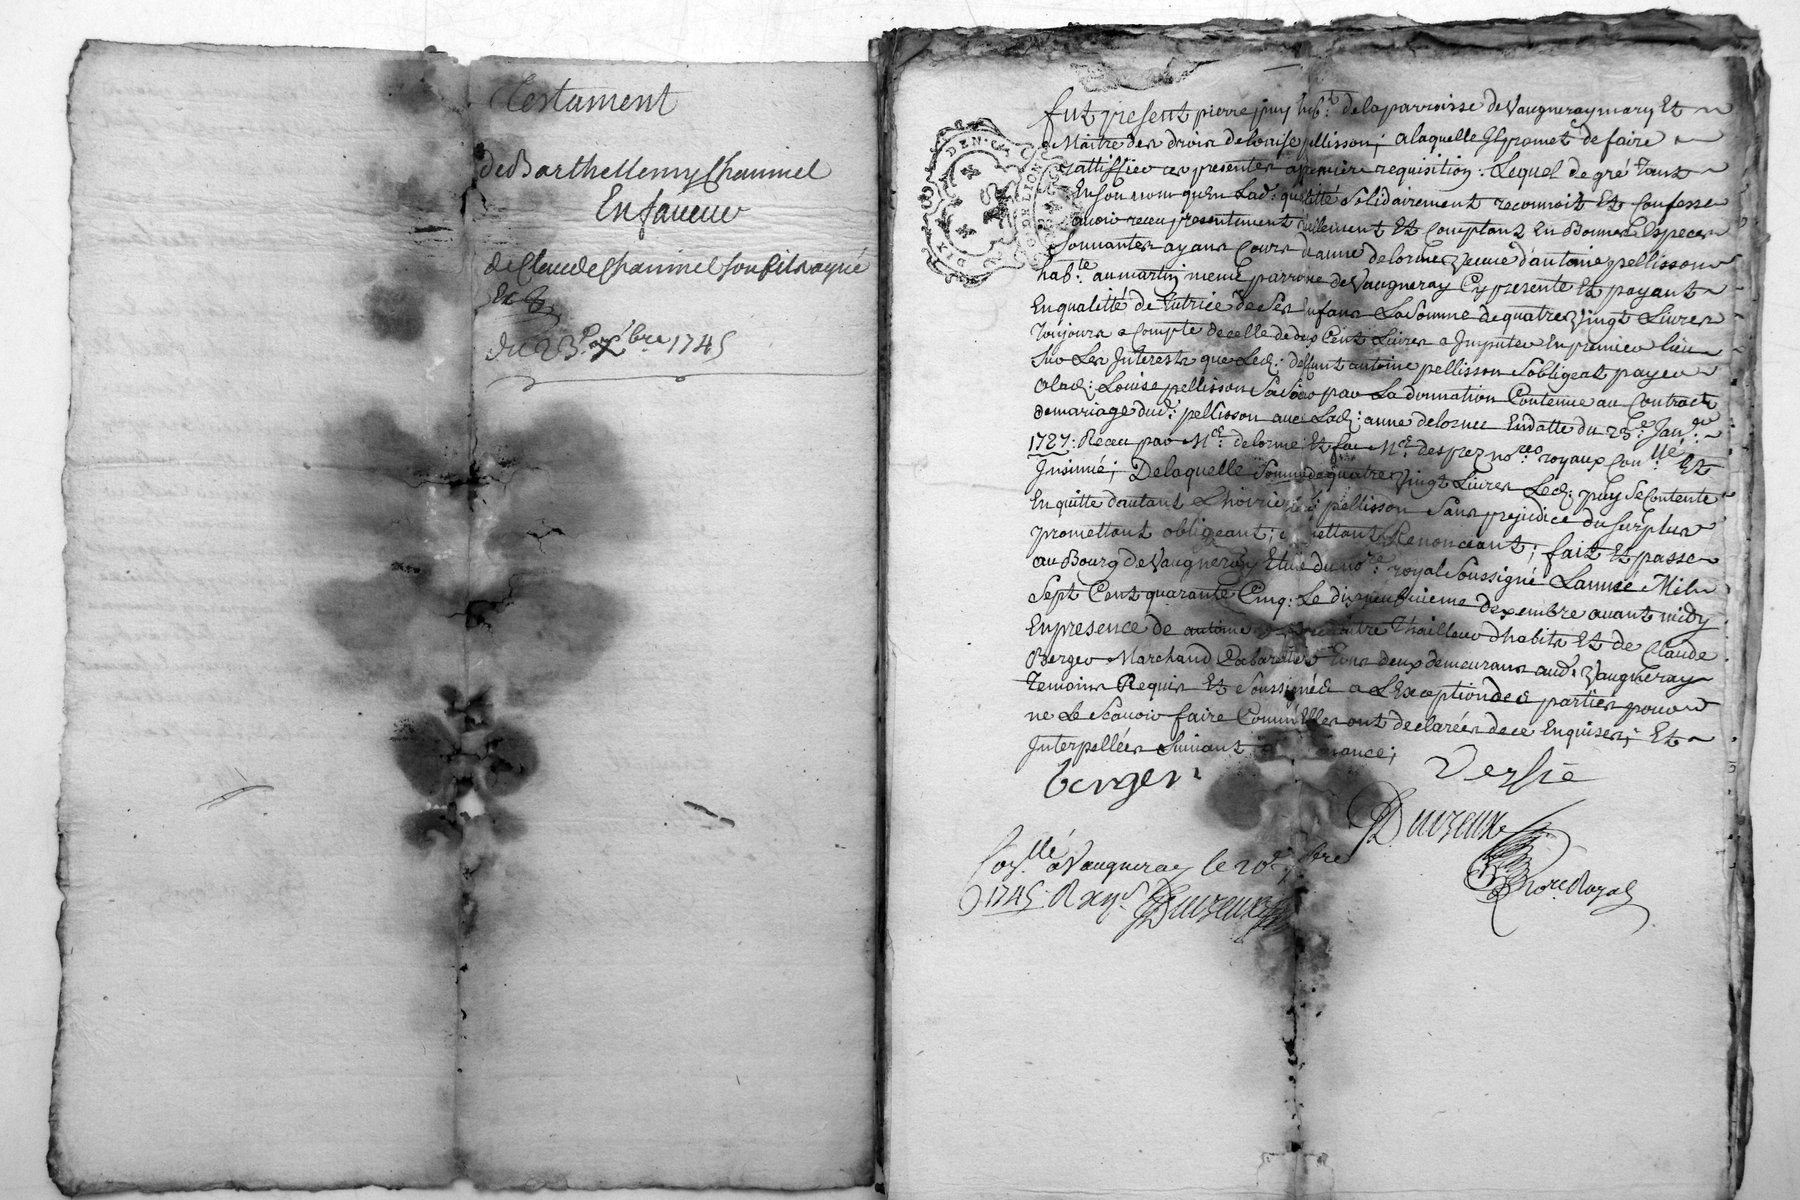 Testament
de Barthellemy Chauniel
En faveur
de Claude Chauniel son fils ayné
du 23e xbre 1745
fut present pierre puy hab.t de la parroisse de Vaugneray mary Et
Maitre des droits de Loüise pellisson; a laquelle Il promet de faire
rattiffier ces presentes a premiere requisition: Lequel de gré tant
En son nom qu'En Lad: qualitté solidairement reconnoit Et Confesse
avoir receu presentement rëllement Et Comptant En Bonnes Especes
Sonnantes ayans Cours d'anne delorme Veuve d'antoine pellisson
hab.te au martin meme parroisse de Vaugneray Cy presente Et payant
En qualitté de Tutrice de Ses Enfans La Somme de quatre Vingt Livres
Toujours a Compte de celle de deux Cent Livres a Imputer En premier lieu
Sur Les Interests que Led: deffunt antoine pellisson s'obligeat payer
a lad: Loüise pellisson Sa Sœur par La donnation Contenue au Contract
de mariage dud: pellisson avec Lad: anne delorme En datte du 23e Jan.er
1727: Receu par Me: delorme Et feu Me: desprez no.res royaux Con.llé Et
Insinué; De laquelle Somme de quatre Vingt Livres Led: puy Se Contente
En quitte d'autant L'hoirie pellisson Sans prejudice du Surplus
promettant obligeant; Renonceant; fait Et passé
au Bourg de Vaugneray Etude du no.re royal Soussigné L'année Mil
Sept Cent quarante Cinq: Le dixneufvieme dexembre avant midy
En presence de antoine maitre Thailleur d'habits Et de Claude
Berger Marchand Cabaretier Tous deux demeurans aud: Vaugneray
Temoins Requis Et Soussignés a L'Exception des parties pour
ne Le Scavoir faire Comm'Elles ont declarées de ce Enquises; Et
Interpellées Suivant
berger
Duvzeux
Nore Royal
Con.llé a Vaugneray le 20e xbre
1745. R
Duvzeux